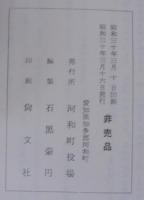 昭和三十年三月十日印刷
昭和三十年三月十六日発行
非売品
愛知県知多郡河和町
発行所 河和町役場
編集 石黒栄円
印刷 尚文社